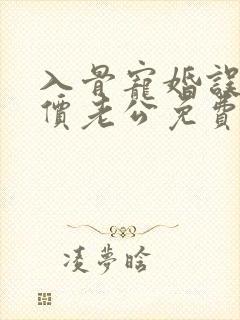 入骨寵婚誤
價老公免費
凌夢晗